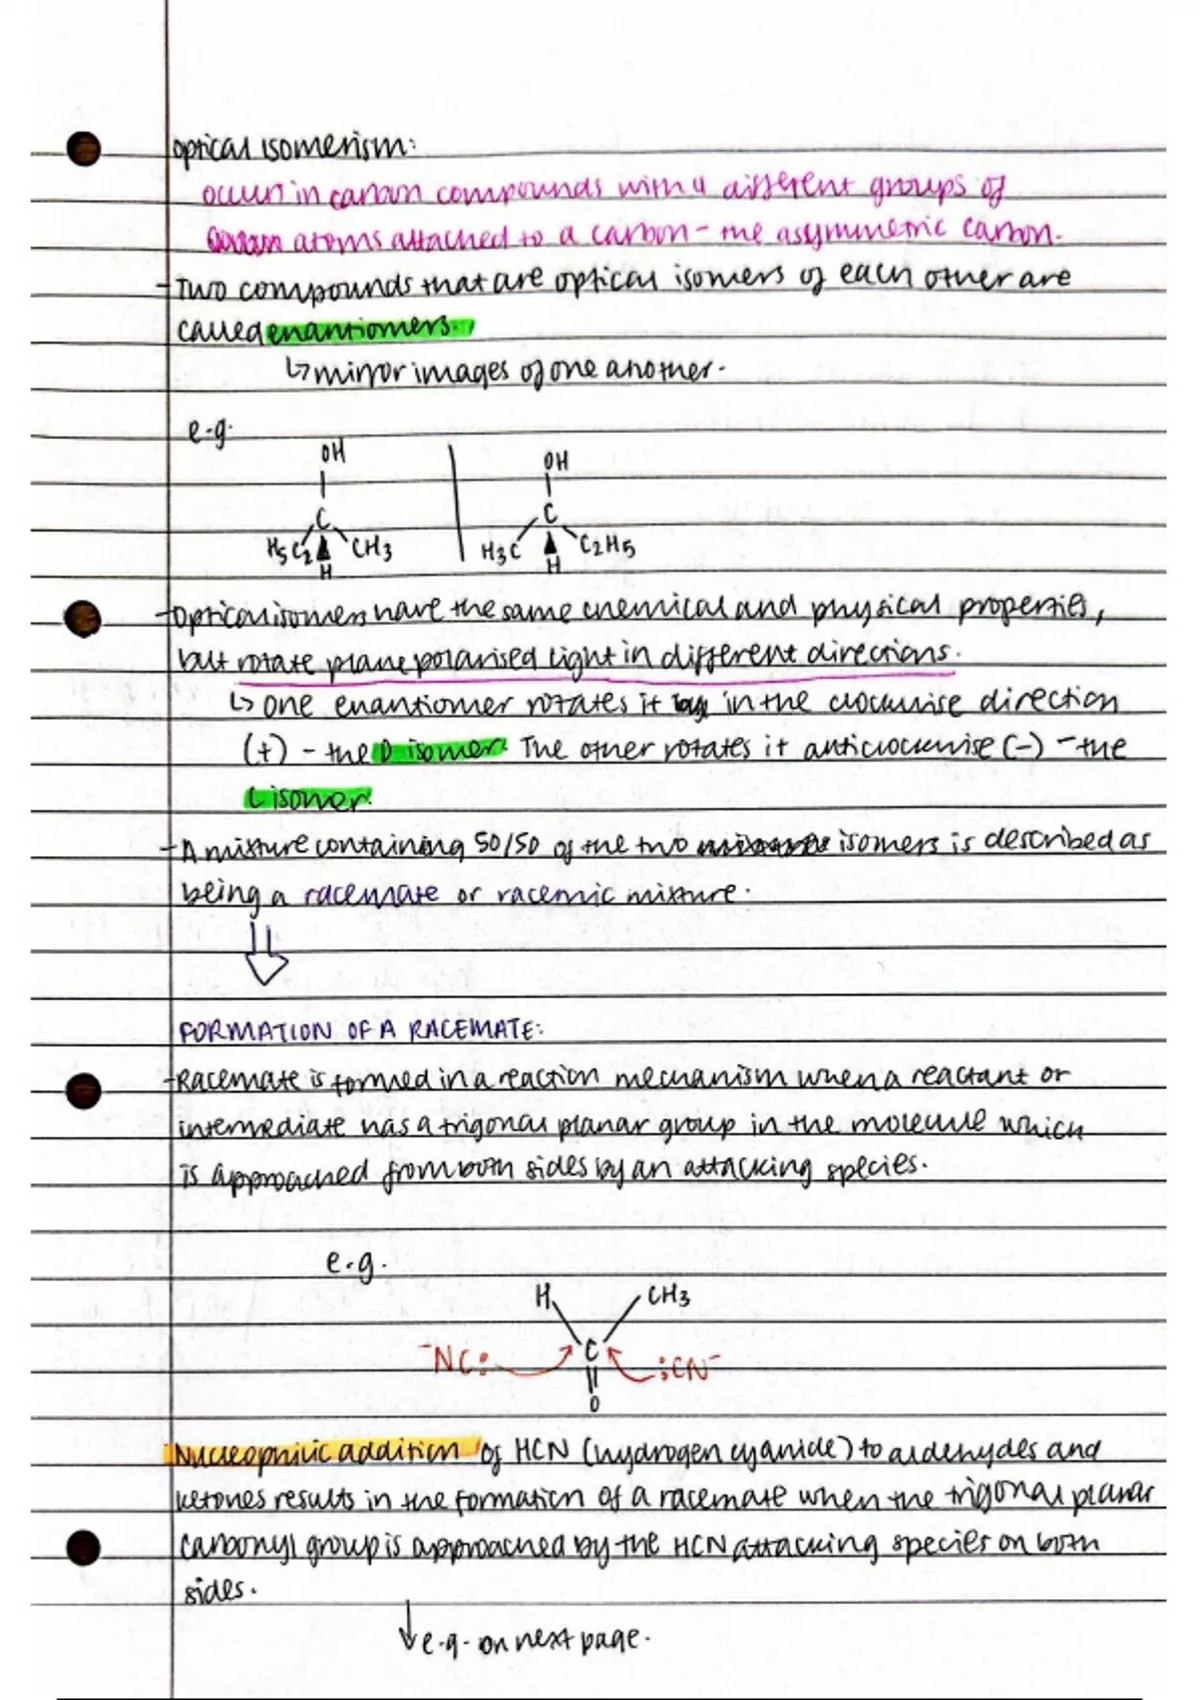 optical isomerism:
occurs in carbon compounds with 4 different groups of
atoms attached to a carbon - the asymmetric carbon.
- Two compounds that are optical isomers of each other are
called enantiomers.
↳ mirror images of one another.
e.g.
OH | OH
C C
H5C2 CH3 H3C C2H5
H H
- Optical isomers have the same chemical and physical properties,
but rotate plane polarised light in different directions.
↳ one enantiomer rotates it in the clockwise direction
(+) - the D isomer. The other rotates it anticlockwise (-) - the
L isomer.
- A mixture containing 50/50 of the two isomers is described as
being a racemate or racemic mixture.
FORMATION OF A RACEMATE:
- Racemate is formed in a reaction mechanism when a reactant or
intermediate has a trigonal planar group in the molecule which
is approached from both sides by an attacking species.
e.g.
H CH3
-NC: C :CN-
O
Nucleophilic addition of HCN (hydrogen cyanide) to aldehydes and
ketones results in the formation of a racemate when the trigonal planar
carbonyl group is approached by the HCN attacking species on both
sides.
↓ e.g. on next page.